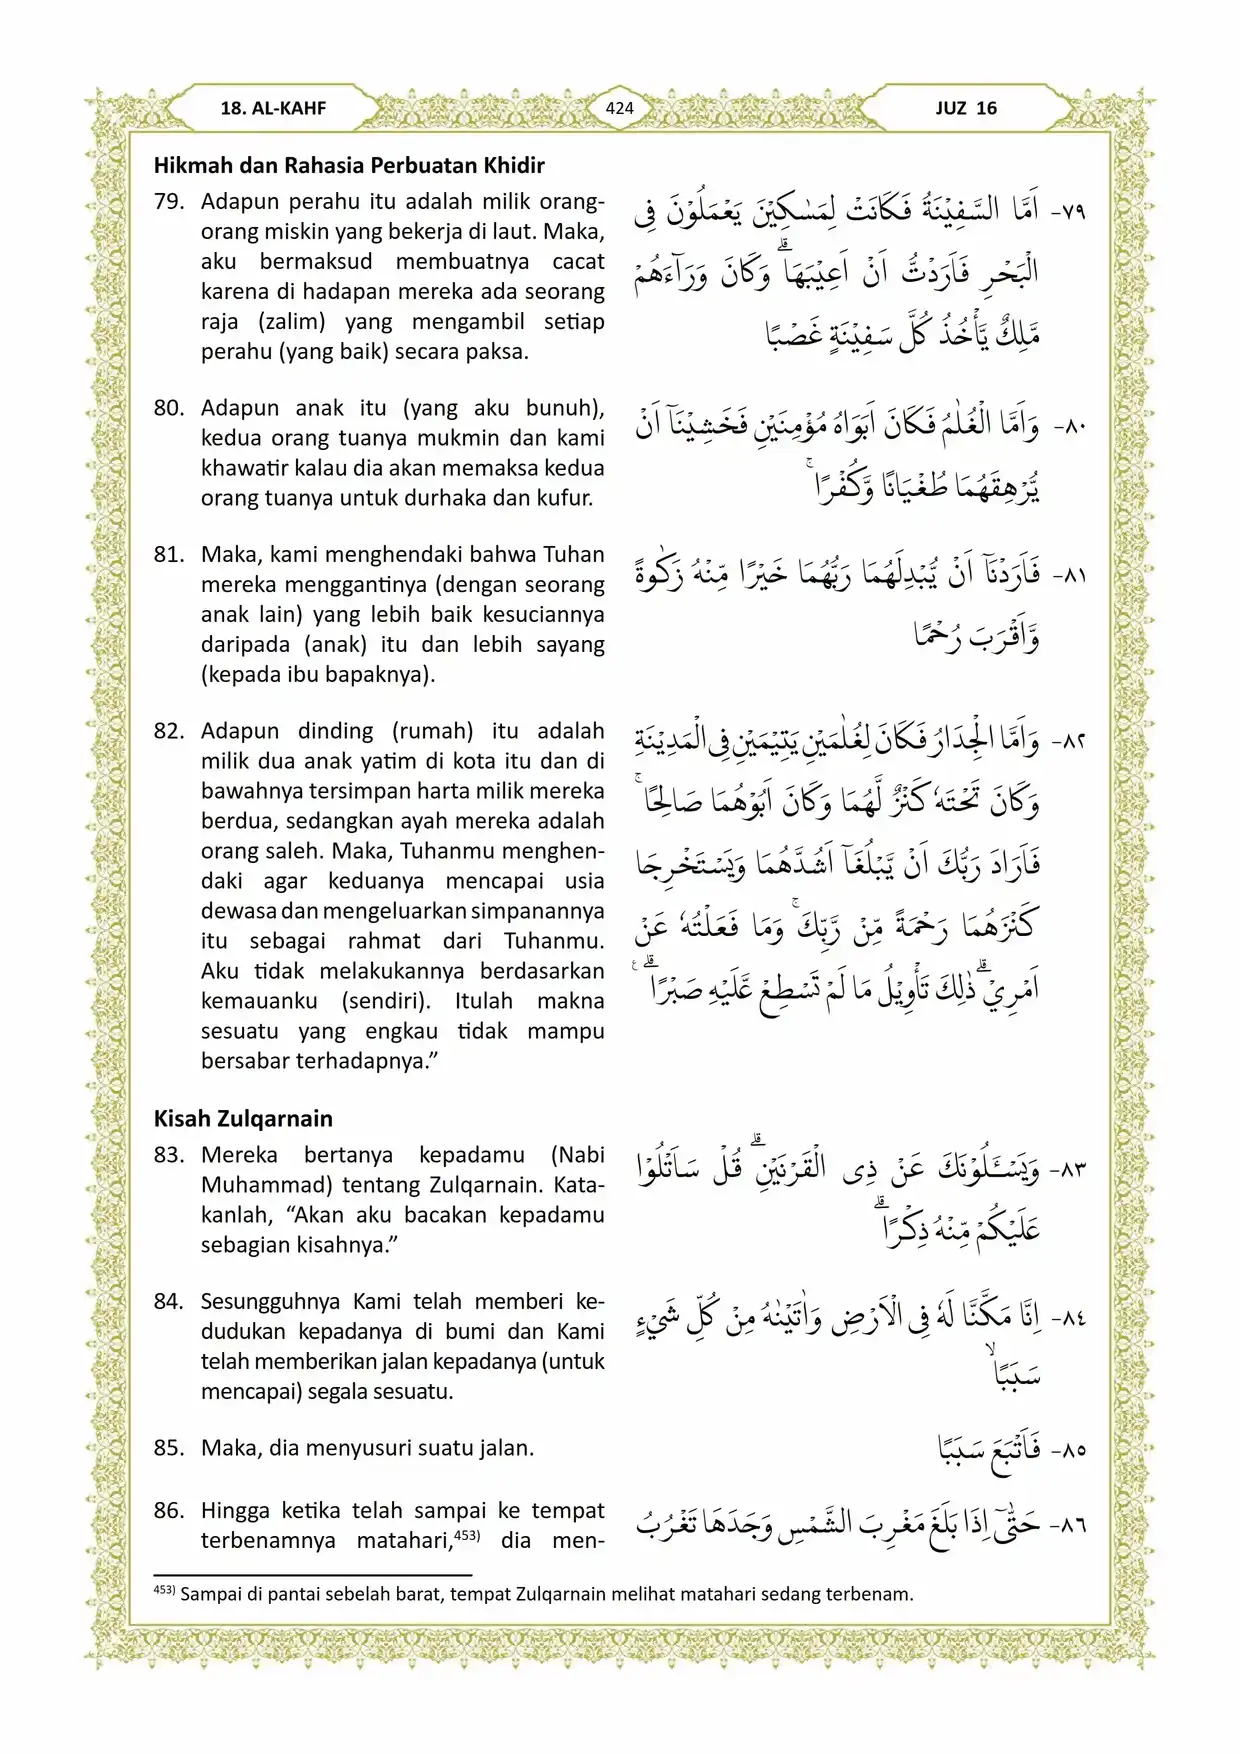 18. AL-KAHF
424
JUZ 16
Hikmah dan Rahasia Perbuatan Khidir
79. Adapun perahu itu adalah milik orang-
orang miskin yang bekerja di laut. Maka,
aku bermaksud membuatnya cacat
karena di hadapan mereka ada seorang
raja (zalim) yang mengambil setiap
perahu (yang baik) secara paksa.
٧٩- اَمَّا السَّفِيْنَةُ فَكَانَتْ لِمَسٰكِيْنَ يَعْمَلُوْنَ فِى
الْبَحْرِ فَاَرَدْتُّ اَنْ اَعِيْبَهَاۗ وَكَانَ وَرَاۤءَهُمْ
مَّلِكٌ يَّأْخُذُ كُلَّ سَفِيْنَةٍ غَصْبًا
80. Adapun anak itu (yang aku bunuh),
kedua orang tuanya mukmin dan kami
khawatir kalau dia akan memaksa kedua
orang tuanya untuk durhaka dan kufur.
٨٠- وَاَمَّا الْغُلٰمُ فَكَانَ اَبَوَاهُ مُؤْمِنَيْنِ فَخَشِيْنَآ اَنْ
يُّرْهِقَهُمَا طُغْيَانًا وَّكُفْرًا ۚ
81. Maka, kami menghendaki bahwa Tuhan
mereka menggantinya (dengan seorang
anak lain) yang lebih baik kesuciannya
daripada (anak) itu dan lebih sayang
(kepada ibu bapaknya).
٨١- فَاَرَدْنَآ اَنْ يُّبْدِلَهُمَا رَبُّهُمَا خَيْرًا مِّنْهُ زَكٰوةً
وَّاَقْرَبَ رُحْمًا
82. Adapun dinding (rumah) itu adalah
milik dua anak yatim di kota itu dan di
bawahnya tersimpan harta milik mereka
berdua, sedangkan ayah mereka adalah
orang saleh. Maka, Tuhanmu menghen-
daki agar keduanya mencapai usia
dewasa dan mengeluarkan simpanannya
itu sebagai rahmat dari Tuhanmu.
Aku tidak melakukannya berdasarkan
kemauanku (sendiri). Itulah makna
sesuatu yang engkau tidak mampu
bersabar terhadapnya.”
٨٢- وَاَمَّا الْجِدَارُ فَكَانَ لِغُلٰمَيْنِ يَتِيْمَيْنِ فِى الْمَدِيْنَةِ
وَكَانَ تَحْتَهٗ كَنْزٌ لَّهُمَا وَكَانَ اَبُوْهُمَا صَالِحًا ۚ
فَاَرَادَ رَبُّكَ اَنْ يَّبْلُغَآ اَشُدَّهُمَا وَيَسْتَخْرِجَا
كَنْزَهُمَا رَحْمَةً مِّنْ رَّبِّكَۚ وَمَا فَعَلْتُهٗ عَنْ
اَمْرِيْۗ ذٰلِكَ تَأْوِيْلُ مَا لَمْ تَسْطِعْ عَّلَيْهِ صَبْرًاۗ ࣖ
Kisah Zulqarnain
83. Mereka bertanya kepadamu (Nabi
Muhammad) tentang Zulqarnain. Kata-
kanlah, “Akan aku bacakan kepadamu
sebagian kisahnya.”
٨٣- وَيَسْـَٔلُوْنَكَ عَنْ ذِى الْقَرْنَيْنِۗ قُلْ سَاَتْلُوْا
عَلَيْكُمْ مِّنْهُ ذِكْرًاۗ
84. Sesungguhnya Kami telah memberi ke-
dudukan kepadanya di bumi dan Kami
telah memberikan jalan kepadanya (untuk
mencapai) segala sesuatu.
٨٤- اِنَّا مَكَّنَّا لَهٗ فِى الْاَرْضِ وَاٰتَيْنٰهُ مِنْ كُلِّ شَيْءٍ
سَبَبًاۙ
85. Maka, dia menyusuri suatu jalan.
٨٥- فَاَتْبَعَ سَبَبًا
86. Hingga ketika telah sampai ke tempat
terbenamnya matahari,⁴⁵³⁾ dia men-
٨٦- حَتّٰىٓ اِذَا بَلَغَ مَغْرِبَ الشَّمْسِ وَجَدَهَا تَغْرُبُ
⁴⁵³⁾ Sampai di pantai sebelah barat, tempat Zulqarnain melihat matahari sedang terbenam.